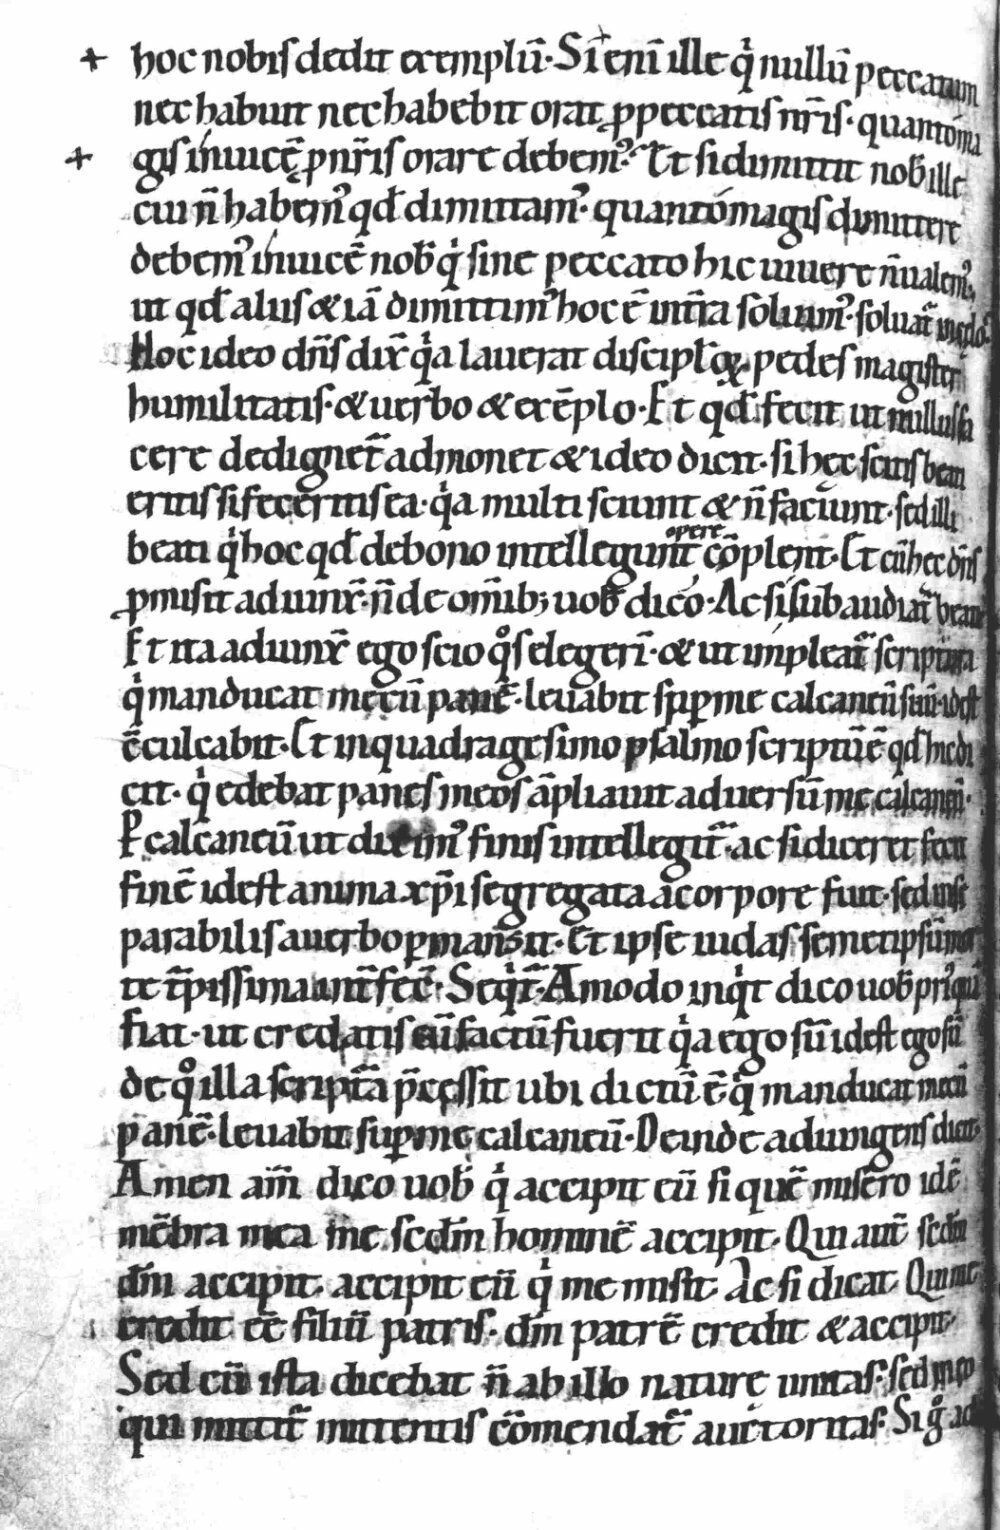 hoc nobis dedit exemplū. Si enī ille qͥ nullū peccatum
nec habuit nec habebit orat ꝓ peccatis nr̄is. quanto ma
gis inuicē ꝓ nr̄is orare debem᷒. Et si dimittit nob̄ ille
cui n̄ habem᷒ qđ dimittam᷒. quanto magis dimittere
debem᷒ inuicē nob̄ qͥ sine peccato hic uiuere n̄ ualem᷒.
ut qđ aliis & iā dimittim᷒ hoc ē in tr̄ra soluim᷒. soluat᷑ in celo.
Hoc ideo dn̄s dix̄ qͥa lauerat discipl̄oꝝ pedes magister
humilitatis. & uerbo & exēplo. Et qđ fecit ut nullus fa
cere dedignet᷑ admonet & ideo dicit. si hęc scitis beati
eritis si feceritis ea. qͥa multi sciunt & n̄ faciunt. sed illi
beati qͥ hoc qđ de bono intellegunt opere cōplent. Et cū hec dn̄s
ꝓmisit adiunx̄. n̄ de om̄ib; uob̄ dico. Ac si subaudiat᷑ beati
Et ita adiunx̄ ego scio qͦs elegerī. & ut impleat᷑ scriptura
qͥ manducat mecū panē. leuabit sup̱ me calcaneū suū. id est
ēculcabit. Et in quadragesimo psalmo scriptū ē qđ hic di
cit. qͥ edebat panes meos āpliauit aduersū me calcaneū.
P calcaneū ut dixim᷒ finis intellegit᷑. ac si diceret fecit
finē id est anima xp̄i segregata a corpore fuit. sed inse
parabilis a uerbo ꝑmansit. Et ipse iudas semetipsū mor
te t᷑pissima int᷑fec̄. Seqͥt᷑. Amodo inqͥt dico uob̄ priꝰ quā
fiat. ut credatis cū factū fuerit qͥa ego sū id est ego sū
de qͦ illa script᷑a p̄cessit ubi dictū ē qͥ manducat mecū
panē. leuabit sup̱ me calcaneū. Deinde adiungens dicit.
Amen am̄ dico uob̄ qͥ accipit eū si quē misero idē
mēbra mea me sedm̄ hominē accipit. Qui aut̄ sedm̄
dm̄ accipit. accipit eū qͥ me misit. Ac si dicat. Qui me
credit eē filiū patris. dm̄ patrē credit & accipit.
Sed cū ista dicebat n̄ ab illo nature unitas. sed in eo
qui mittit᷑ mittentis cōmendat᷑ auctoritas. Si gͦ ad